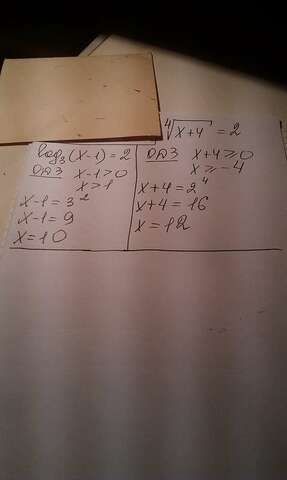 log₃(x-1) = 2
ОДЗ x-1>0
x>1
x-1 = 3²
x-1 = 9
x = 10
⁴√x+4 = 2
ОДЗ x+4⩾0
x⩾-4
x+4 = 2⁴
x+4 = 16
x = 12